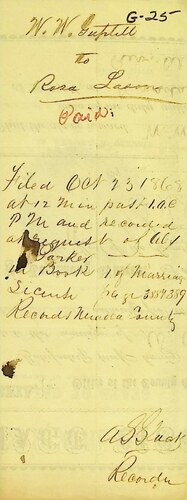 G-25
W. W. Guptill
to
Rosa
Paid:
Filed Oct 23 186
at 12 min past 1.O.C
P M and recorded
at request of
Parker
in Book 1 of Marriage
License page 388 & 389
Records Nevada County
Recorder